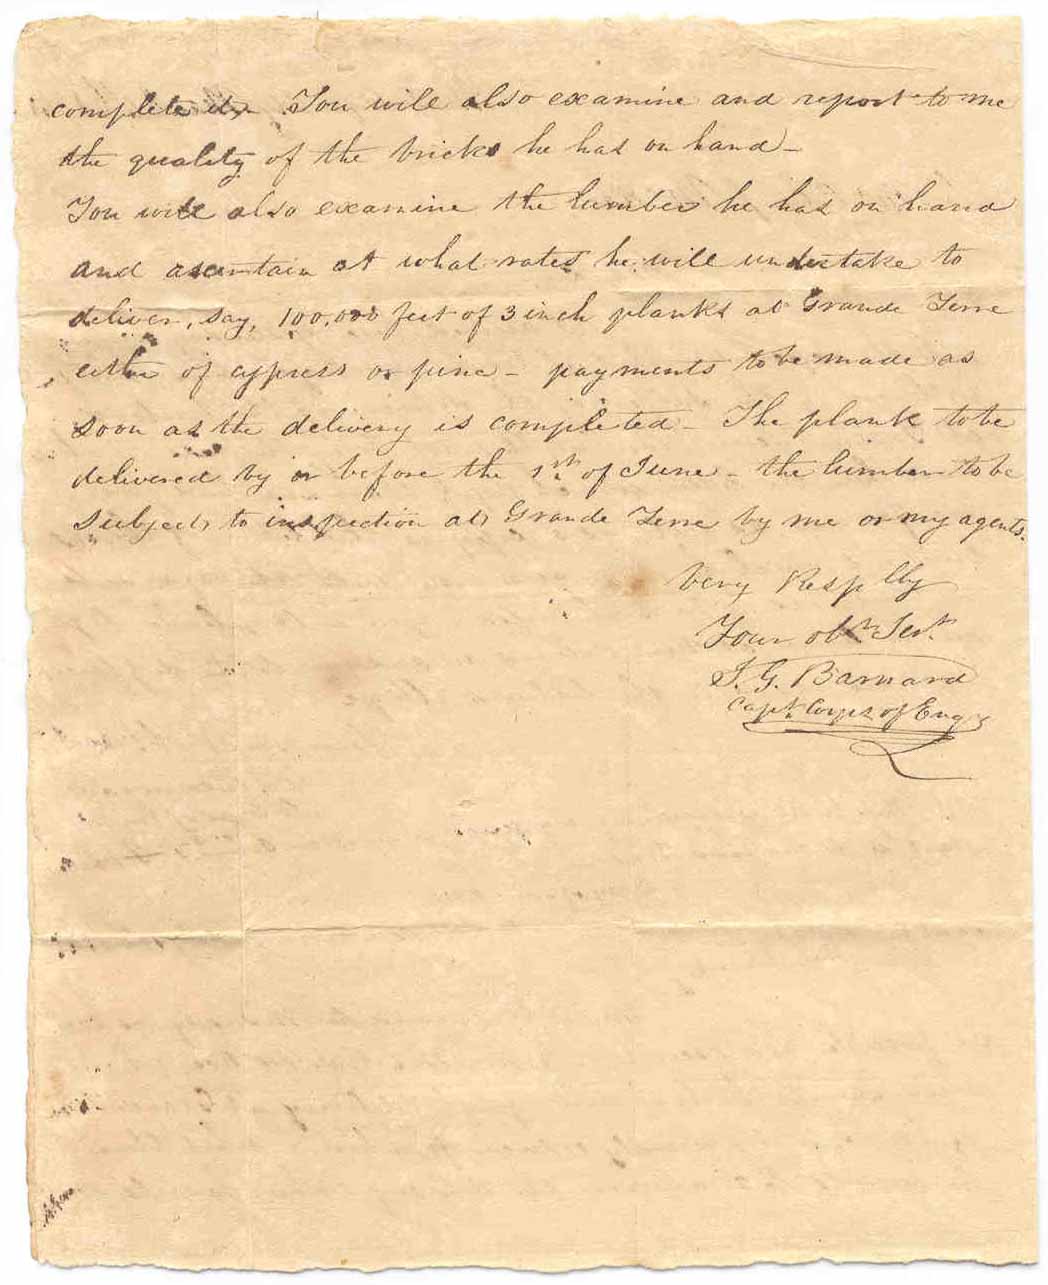 complete it. You will also examine and report to me
the quality of the bricks he has on hand –
You will also examine the lumber he has on hand
and ascertain at what rates he will undertake to
deliver, say, 100,000 feet of 3 inch planks at Grande Terre
either of cypress or pine – payments to be made as
soon as the delivery is completed – The plank to be
delivered by or before the 1st of June – the lumber to be
subject to inspection at Grande Terre by me or my agents.
Very Resplly
Your obt. Servt.
J. G. Barnard
Capt. Corps of Engs